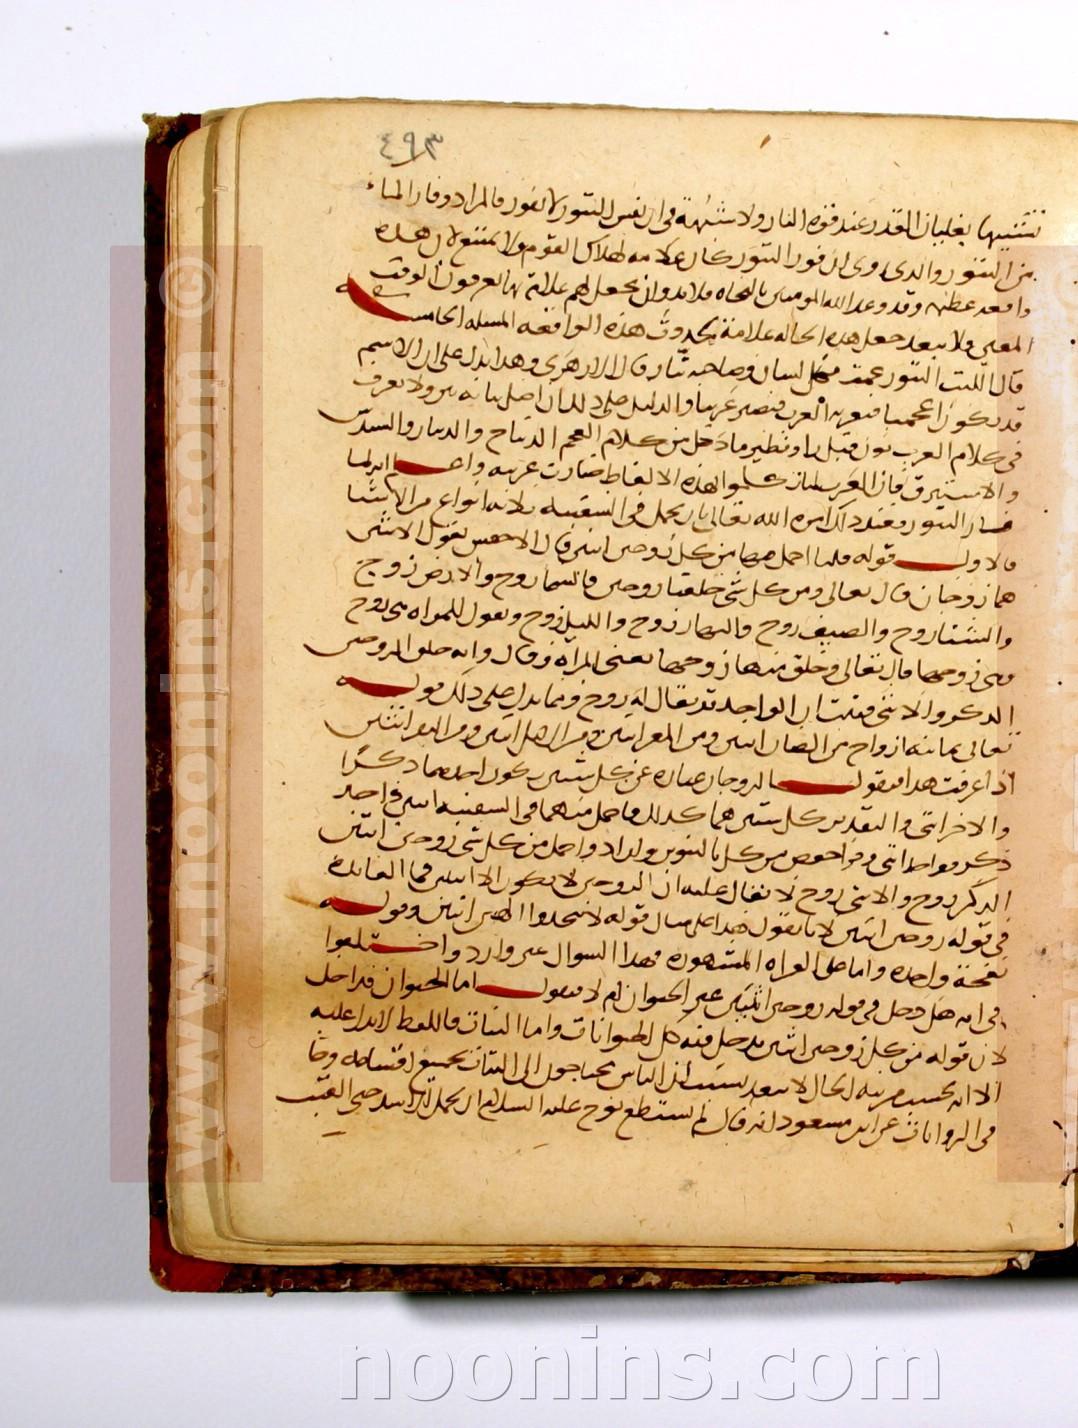 ٤٩٣
تشبيها بغليان القدر عند قوة النار ولا شبهة في ان نفس التنور لا يفور فالمراد وفار الماء
من التنور والذي روي ان فور التنور كان علامة لهلاك القوم ولا يمتنع لان هذه
واقعة عظيمة وقد وعد الله المومنين بالنجاة فلا بد وان يجعل لهم علامة بها يعرفون الوقت
المعين ولا يبعد جعل هذه الحالة علامة لحدوث هذه الواقعة المسئلة الخامسة
قال الليث التنور عمت بكل لسان وصاحبه تنار قال الازهري وهذا يدل على ان الاسم
قد يكون اعجميا فتعربه العرب فيصير عربيا والدليل على ذلك ان اصل بنائه تنر ولا يعرف
في كلام العرب نون قبل را ونظيره ما دخل من كلام العجم الديباج والدينار والسندس
والاستبرق فان العرب لما تكلموا بهذه الالفاظ صارت عربية واعلم انه لما
فار التنور فعند ذلك امره الله تعالى بان يحمل في السفينة ثلاثة انواع من الاشيا
فالاول قوله قلنا احمل فيها من كل زوجين اثنين قال الاخفش تقول الاثنين
هما زوجان قال تعالى ومن كل شي خلقنا زوجين فالسما زوج والارض زوج
والشتا زوج والصيف زوج والنهار زوج والليل زوج وتقول للمراة هي زوج
وهي زوجها قال تعالى وخلق منها زوجها يعني المراة وقال وانه خلق الزوجين
الذكر والانثى فثبت ان الواحد قد يقال له زوج ومما يدل على ذلك قوله
تعالى ثمانية ازواج من الضان اثنين ومن المعز اثنين ومن الابل اثنين ومن البقر اثنين
اذا عرفت هذا فنقول الزوجان عبارة عن كل شيئين يكون احدهما ذكرا
والاخر انثى والتقدير كل شيئين هما كذلك فاحمل منهما في السفينة اثنين واحد
ذكر وواحد انثى وقرا حفص من كل بالتنوين واراد واحمل من كل شي زوجين اثنين
الذكر زوج والانثى زوج لا يقال عليه ان الزوجين لا يكون الا اثنين فما الفايدة
في قوله زوجين اثنين لانا نقول هذا على مثال قوله لا تتخذوا الهين اثنين وقوله
نفخة واحدة واما على القراة المشهورة فهذا السوال غير وارد واختلفوا
في انه هل دخل في قوله زوجين اثنين غير الحيوان ام لا فنقول اما الحيوان فداخل
لان قوله من كل زوجين اثنين يدخل فيه كل الحيوانات واما النبات فاللفظ لا يدل عليه
الا انه بحسب قرينة الحال لا يبعد بسبب ان الناس محتاجون الى النبات بجميع اقسامه وجا
في الروايات عن ابن مسعود انه قال لم يستطع نوح عليه السلام ان يحمل الاسد حتى القيت
www.noonins.com
noonins.com